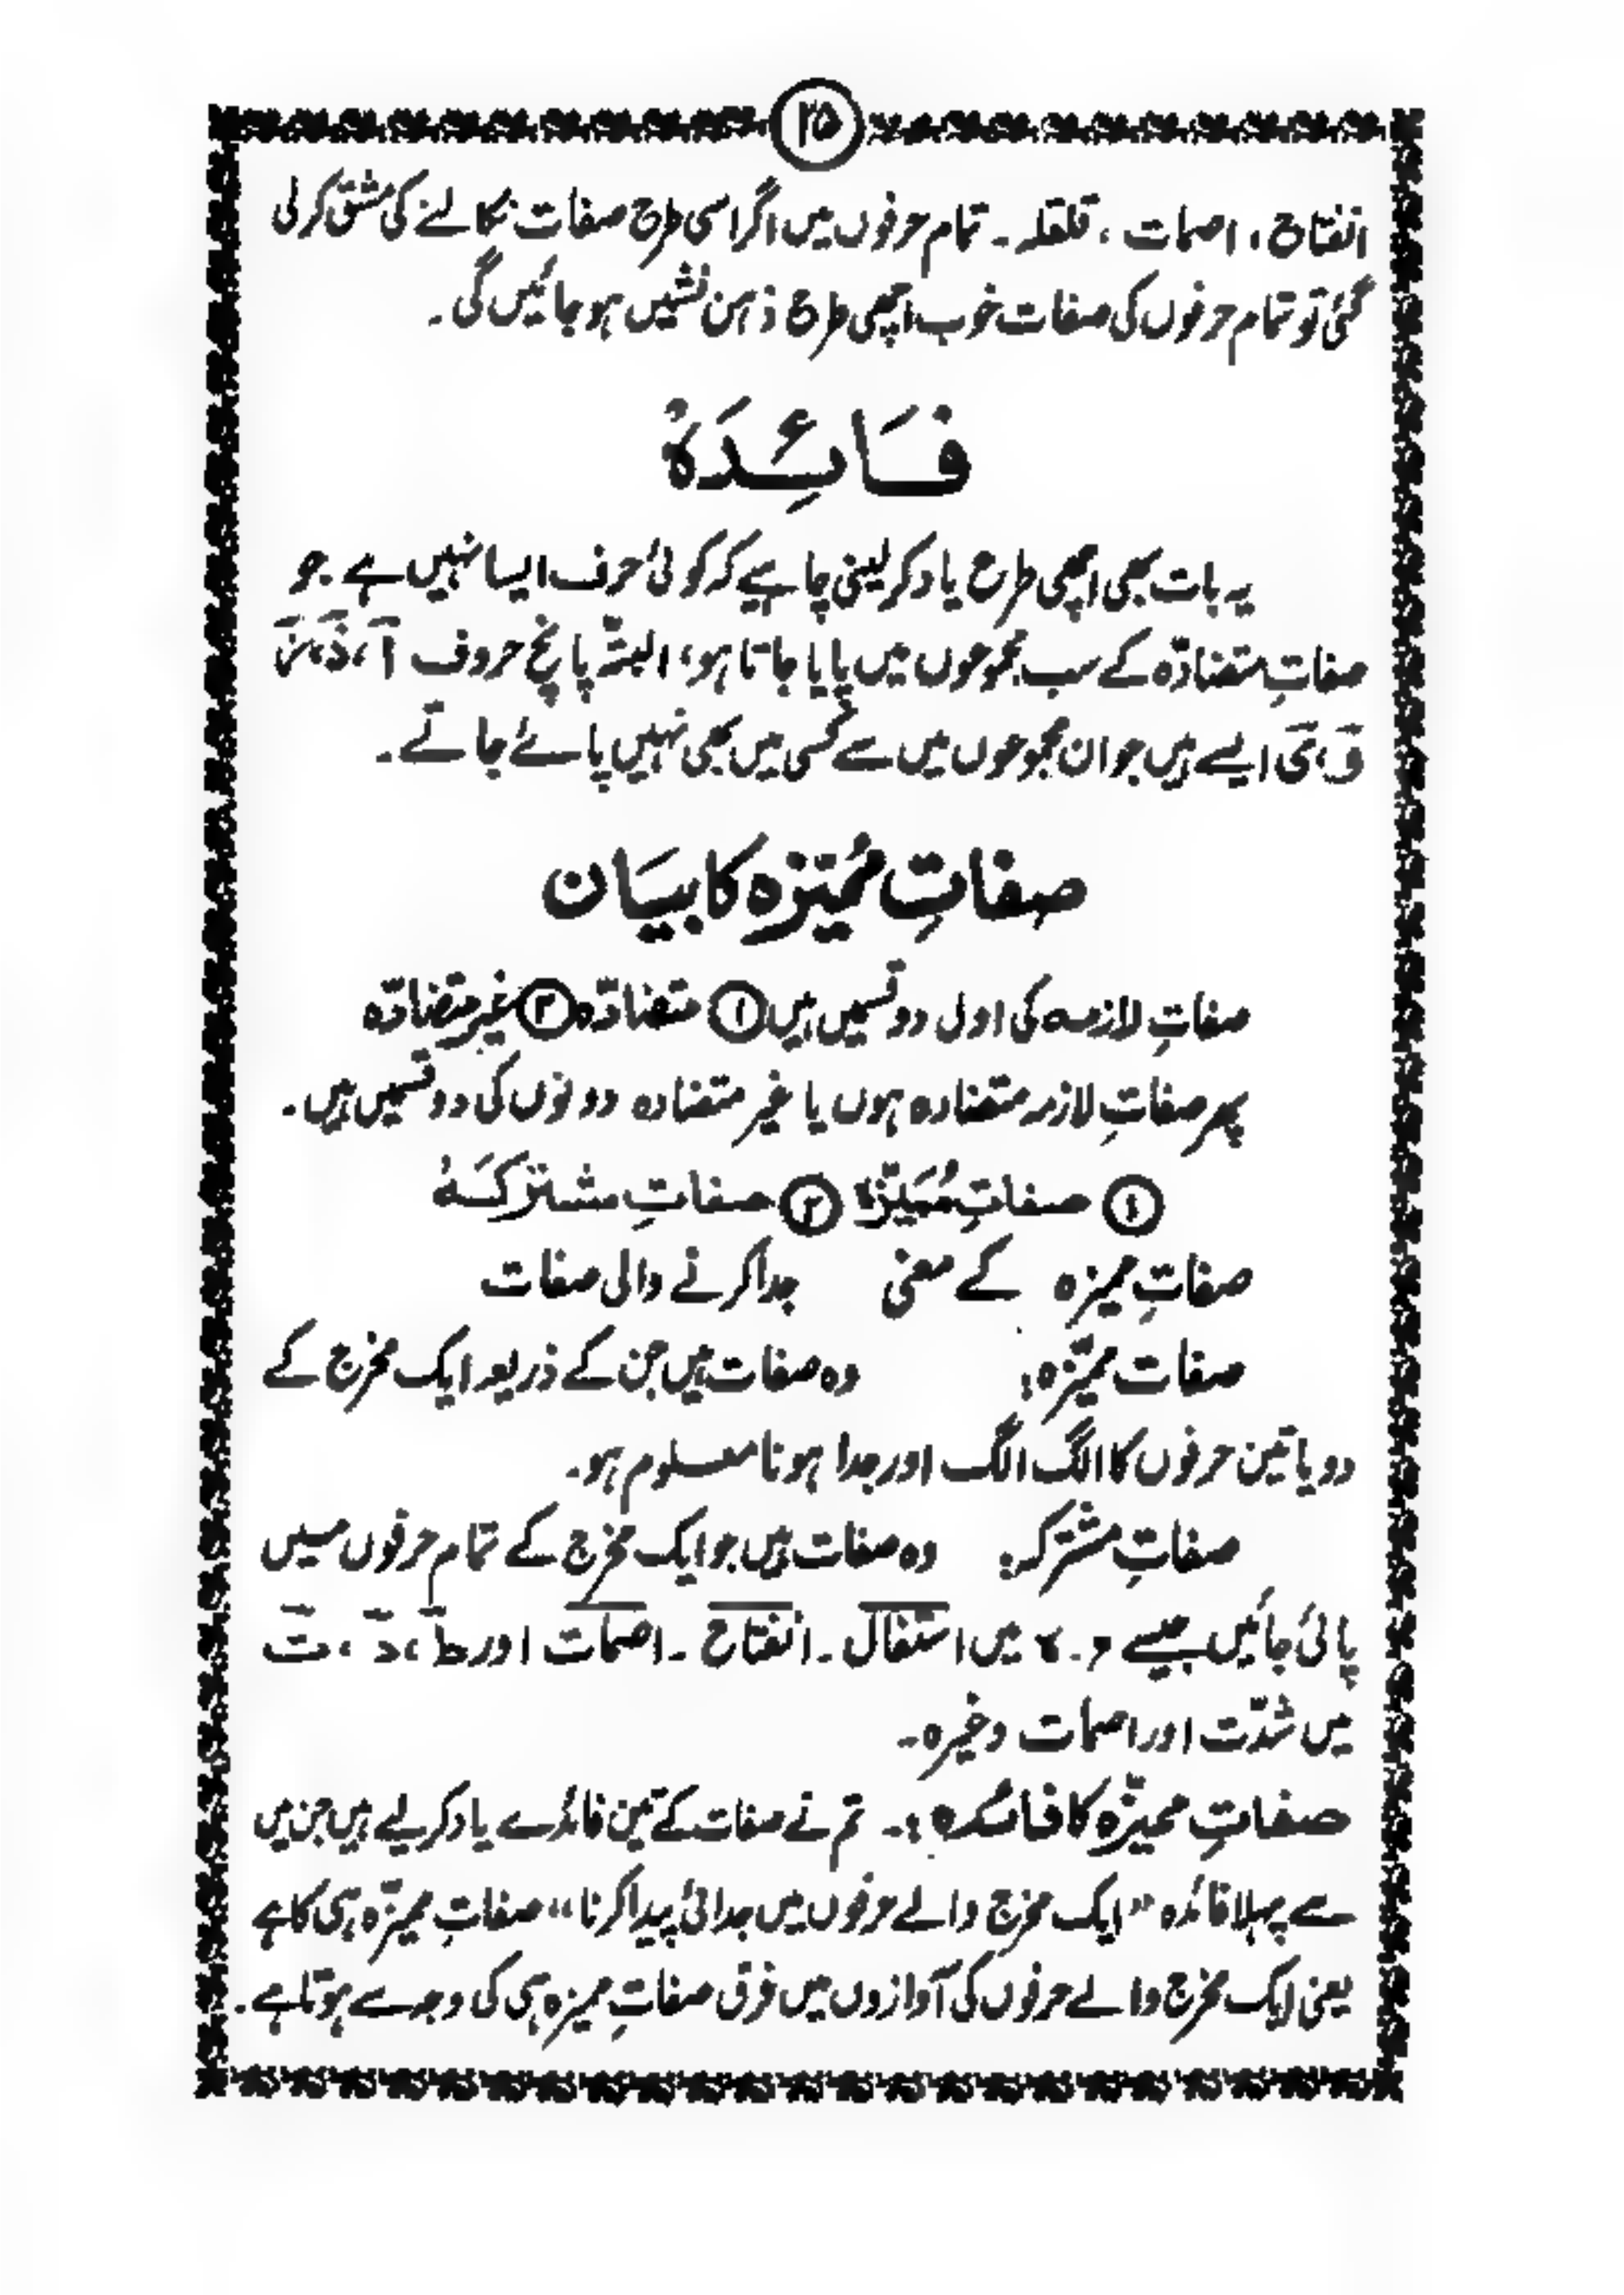 ۲۵
انفتاح، اصمات، قلقلہ۔ تمام حرفوں میں اگر اسی طرح صفات نکالنے کی مشق کر لی
گئی تو تمام حرفوں کی صفات خوب اچھی طرح ذہن نشیں ہو جائیں گی۔
فَائِدَہْ
یہ بات بھی اچھی طرح یاد کر لینی چاہیے کہ کوئی حرف ایسا نہیں ہے جو
صفاتِ متضادّہ کے سب مجموعوں میں پایا جاتا ہو، البتّہ پانچ حروف آ، ذَ،
وَ، یَ ایسے ہیں جو ان مجموعوں میں سے کسی میں بھی نہیں پائے جاتے۔
صفاتِ مُمیّزہ کا بیَان
صفاتِ لازمہ کی اول دو قسمیں ہیں ① متضادّہ ② غیر متضادّہ
پھر صفاتِ لازمہ متضادہ ہوں یا غیر متضادہ دونوں کی دو قسمیں ہیں۔
① صفاتِ مُمَیِّزَہْ ② صفاتِ مشترکَہْ
صفاتِ ممیزہ کے معنی جدا کرنے والی صفات
صفات ممیّزہ: وہ صفات ہیں جن کے ذریعہ ایک مخرج کے
دو یا تین حرفوں کا الگ الگ اور جدا ہونا معلوم ہو۔
صفاتِ مشترکہ: وہ صفات ہیں جو ایک مخرج کے تمام حرفوں میں
پائی جائیں جیسے ء۔ ہ میں استفال۔ انفتاح۔ اصمات اور ط، د، ت
میں شدّت اور اصمات وغیرہ۔
صفاتِ ممیّزہ کا فائدہ :۔ تم نے صفات کے تین فائدے یاد کر لیے ہیں جن میں
سے پہلا فائدہ "ایک مخرج والے حرفوں میں جدائی پیدا کرنا" صفاتِ ممیّزہ ہی کا ہے
یعنی ایک مخرج والے حرفوں کی آوازوں میں فرق صفاتِ ممیزہ ہی کی وجہ سے ہوتا ہے۔